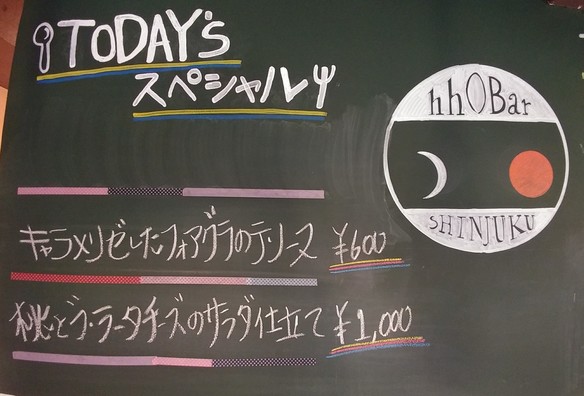 TODAY's
スペシャル
hhOBar
SHINJUKU
キャラメリゼしたフォアグラのテリーヌ ¥600
桃とブ・ラータチーズのサラダ仕立て ¥1,000